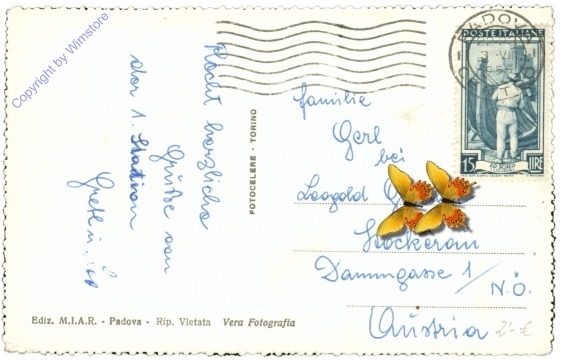 Copyright by Wimstore
Recht herzliche
Grüße von
der 1. Station
PADOVA
POSTE ITALIANE
15 LIRE
FOTOCELERE - TORINO
Familie
Gerl
bei
Leopold G
Stockerau
Dammgasse 1/
N.Ö.
Austria
2-€
Ediz. M.I.A.R. - Padova - Rip. Vietata Vera Fotografia